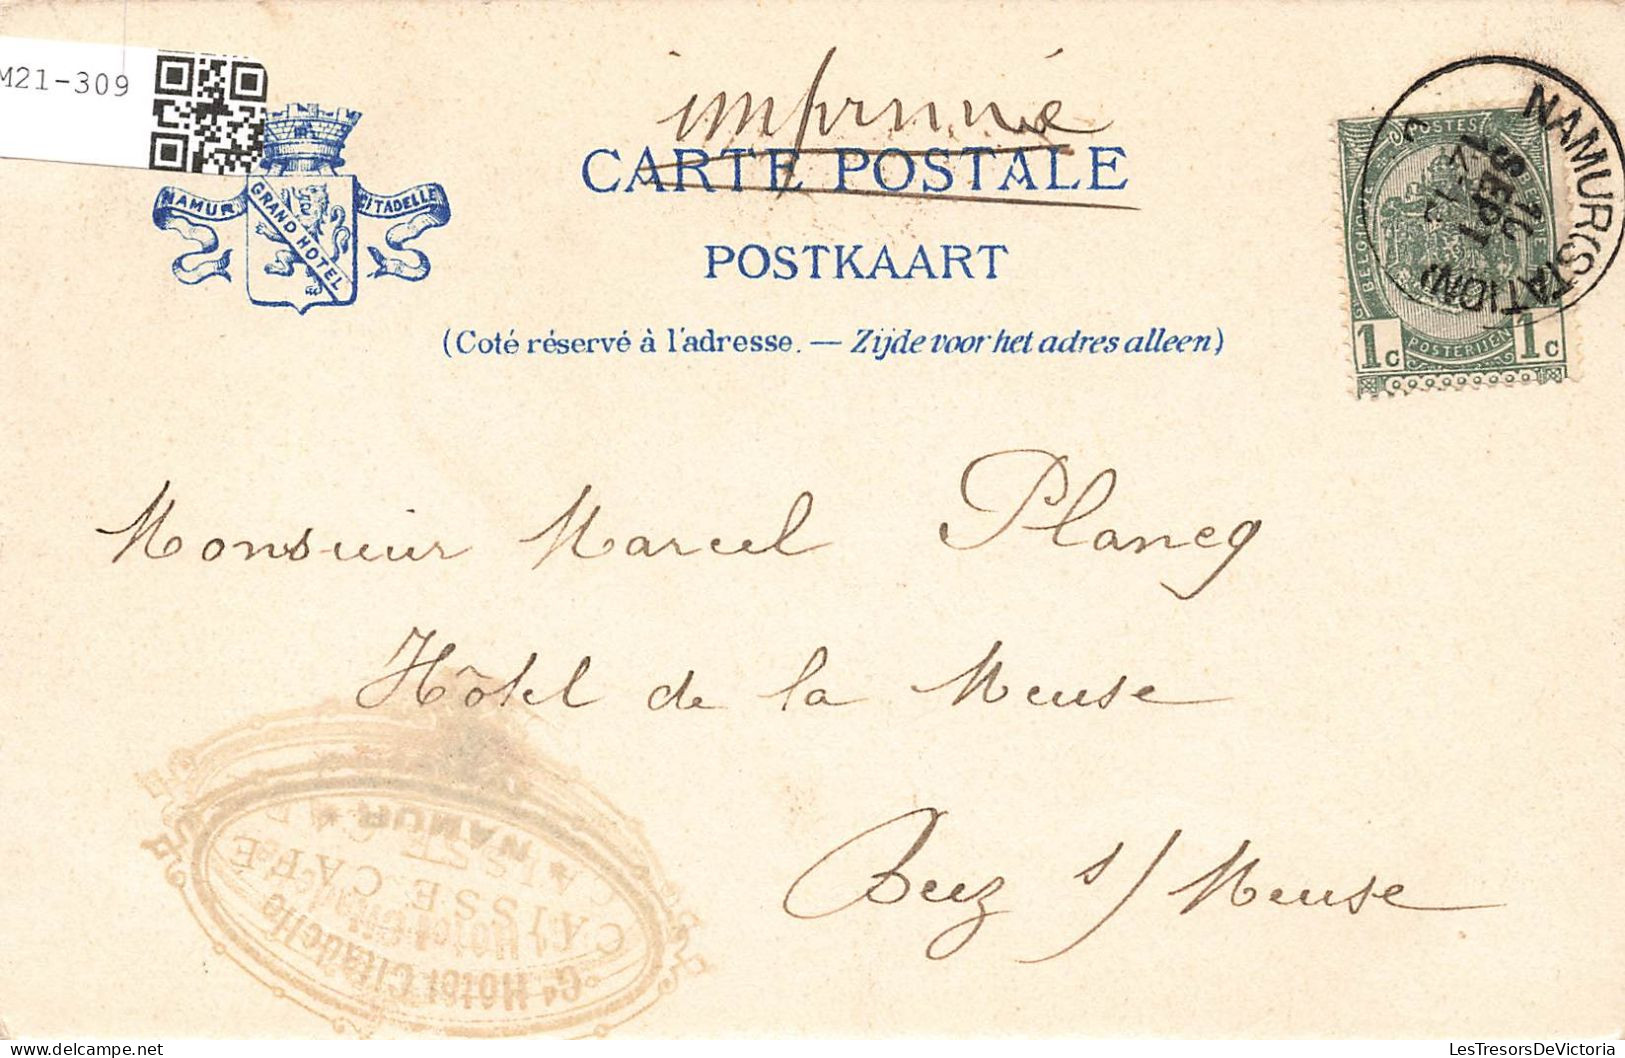 M21-309
imprimé
CARTE POSTALE
NAMUR GRAND HOTEL CITADELLE
POSTKAART
(Coté réservé à l'adresse. — Zijde voor het adres alleen)
NAMUR (STATION)
SEPT
POSTES
POSTERIJEN
1c 1c
Monsieur Marcel Plancq
Hôtel de la Meuse
Buz s/ Meuse
Gd Hôtel Citadelle
CAISSE CAFÉ
NAMUR
LesTresorsDeVictoria